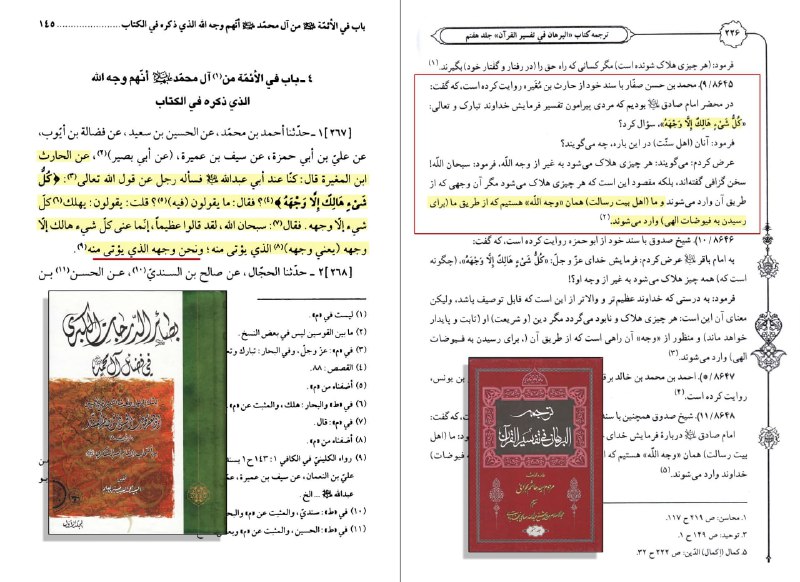 باب في الأئمّة ﷺ من آل محمّد ﷺ أنّهم وجه الله الذي ذكره في الكتاب ...................... ١٤٥
٤ ـ باب في الأئمّة من(١) آل محمّد ﷺ أنّهم وجه الله
الذي ذكره في الكتاب
[٢٦٧] ١ ـ حدّثنا أحمد بن محمّد، عن الحسين بن سعيد، عن فضالة بن أيّوب،
عن عليّ بن أبي حمزة، عن سيف بن عميرة، (عن أبي بصير)(٢)، عن الحارث
ابن المغيرة قال: كنّا عند أبي عبدالله ﷺ فسأله رجل عن قول الله تعالى(٣): ﴿كُلُّ
شَيْءٍ هَالِكٌ إِلَّا وَجْهَهُ﴾(٤)؟ فقال: ما يقولون (فيه)(٥)؟ قلت: يقولون: يهلك(٦) كلّ
شيء إلّا وجهه. فقال(٧): سبحان الله، لقد قالوا عظيماً، إنّما عنى كلّ شيء هالك إلّا
وجهه (يعني وجهه)(٨) الذي يؤتى منه؛ ونحن وجهه الذي يؤتى منه(٩).
[٢٦٨] ٢ ـ حدّثنا الحجّال، عن صالح بن السنديّ(١٠)، عن الحسن(١١) بن
(١) ليست في «م».
(٢) ما بين القوسين ليس في بعض النسخ.
(٣) في «م»: عزّ وجلّ، وفي البحار: تبارك وتع
(٤) القصص: ٨٨.
(٥) أضفناه من «م».
(٦) في «ط» والبحار: هلك، والمثبت عن «م».
(٧) في «م»: قال.
(٨) أضفناه من «م».
(٩) رواه الكلينيّ في الكافي ١: ١٤٣ ح ١ بسند
عليّ بن النعمان، عن سيف بن عميرة، عمّ
عبدالله ﷺ ... الخ.
(١٠) في «ط»: سنديّ، والمثبت عن «م» والبح
(١١) في «ط»: الحسين، والمثبت عن «م» وبعض
بصائر الدرجات الكبرى
في فضائل آل محمد
٢٣٦
ترجمه کتاب «البرهان في تفسير القرآن» جلد هفتم
فرمود: (هر چیزی هلاک شونده است) مگر کسانی که راه حق را (در رفتار و گفتار خود) بگیرند.(١)
٨٦٤٥/ ٩). محمد بن حسن صفّار با سند خود از حارث بن مُغَیره روایت کرده است، که گفت:
در محضر امام صادق ﷺ بودیم که مردی پیرامون تفسیر فرمایش خداوند تبارک و تعالی:
«كُلُّ شَيْءٍ هَالِكٌ إِلَّا وَجْهَهُ»، سؤال کرد؟
فرمود: آنان (اهل سنّت) در این باره، چه می‌گویند؟
عرض کردم: می‌گویند: هر چیزی هلاک می‌شود به غیر از وجه الله، فرمود: سبحان الله! از
سخن گزافی گفته‌اند، بلکه مقصود این است که هر چیزی هلاک می‌شود مگر آن وجهی که از
طریق آن وارد می‌شوند و ما (اهل بیت رسالت) همان «وجه الله» هستیم که از طریق ما (برای
رسیدن به فیوضات الهی) وارد می‌شوند.(٢)
٨٦٤٦/ ١٠). شیخ صدوق با سند خود از ابو حمزه روایت کرده است، که گفت:
به امام باقر ﷺ عرض کردم: فرمایش خدای عزّ و جلّ: «كُلُّ شَيْءٍ هَالِكٌ إِلَّا وَجْهَهُ»، (چگونه
است که) همه چیز هلاک می‌شود به غیر از وجه او؟!
فرمود: به درستی که خداوند عظیم‌تر و والاتر از این است که قابل توصیف باشد، ولیکن
معنای آن این است: هر چیزی هلاک و نابود می‌گردد مگر دین (و شریعت) او (ثابت و پایدار
خواهد ماند) و منظور از «وجه» آن راهی است که از طریق آن (، برای رسیدن به فیوضات
الهی) وارد می‌شوند.(٣)
٨٦٤٧/ ٥). احمد بن محمد بن خالد برق
بن یونس،
روایت کرده است.(٤)
٨٦٤٨/ ١١). شیخ صدوق همچنین با سند
که گفت:
امام صادق ﷺ دربارهٔ فرمایش خدای عز
مود: ما (اهل
بیت رسالت) همان «وجه الله» هستیم که از
به فیوضات)
خداوند وارد می‌شوند.(٥)
ترجمه
البرهان في تفسير القرآن
١. محاسن: ص ٢١٩ ح ١١٧.
٣. توحید: ص ١٤٩ ح ١.
٥. کمال (إکمال) الدّین: ص ٢٢٢ ح ٣٢.